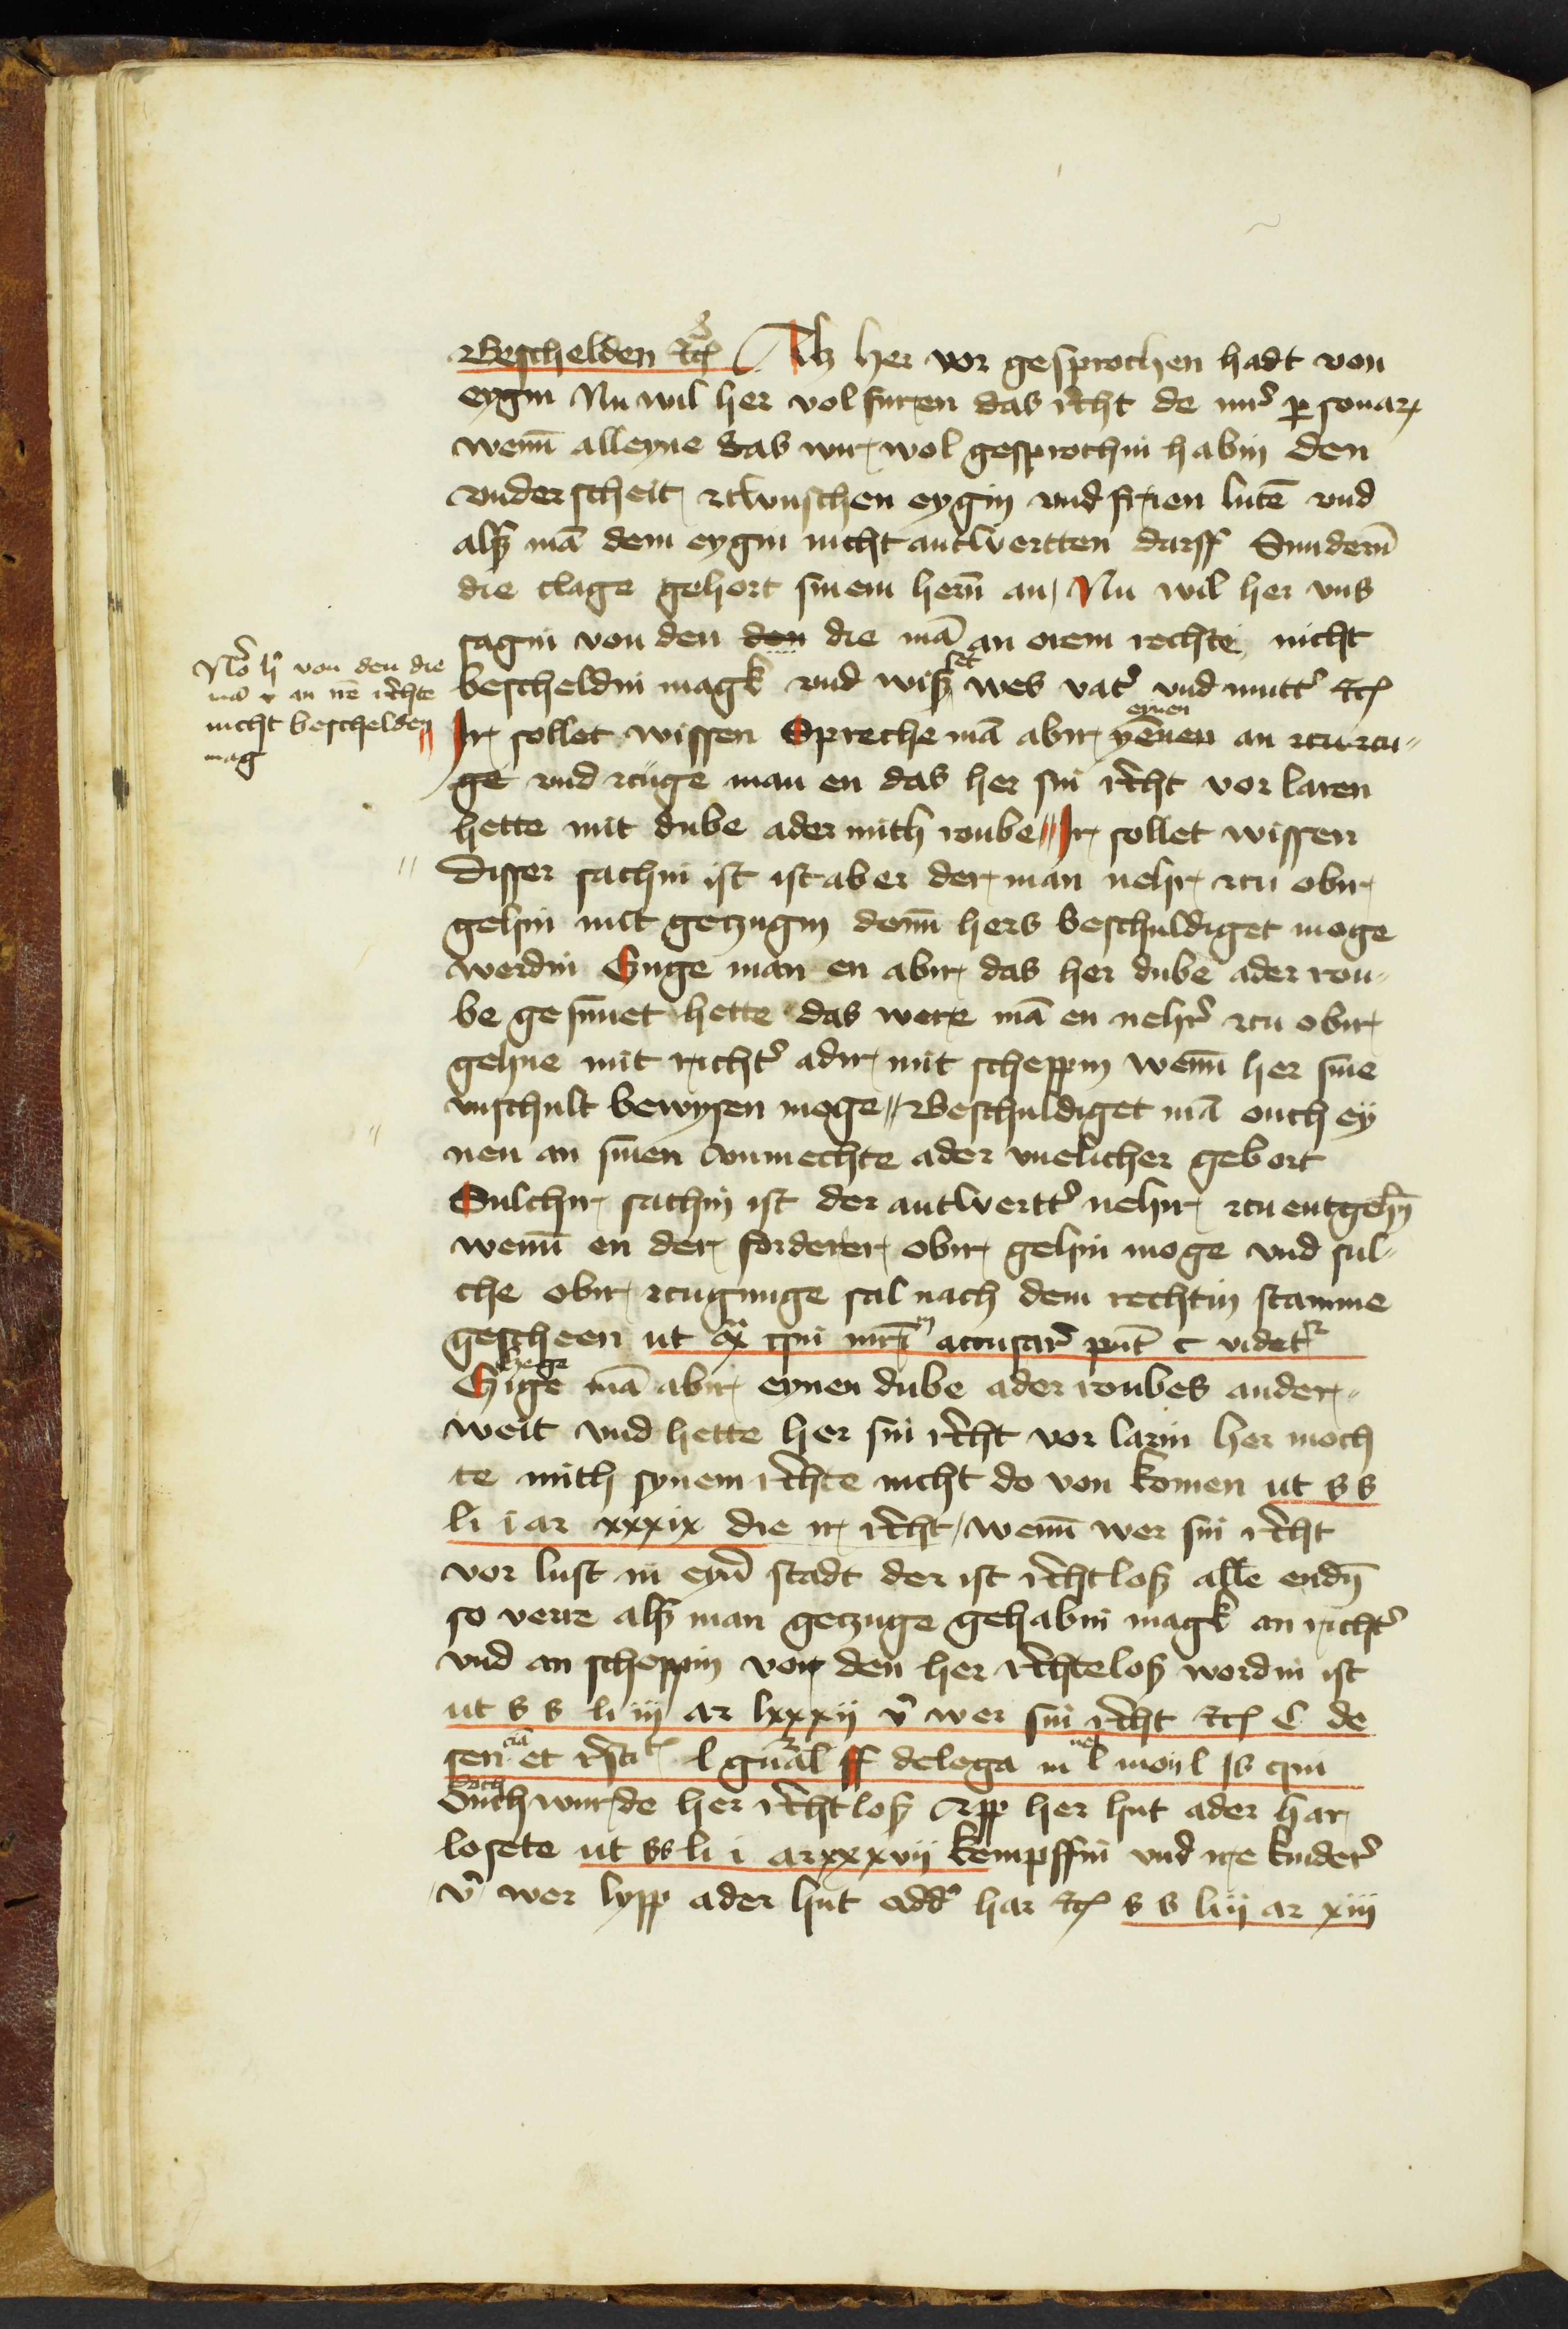 Beschelden etc̃ Als her vor gesprochen hadt von
eygin Nu wil her vol furen das r̃cht de iur̾ p̱sonar
wenn̄ alleyne das wir wol gesprochin habin den
vnderscheit tczwuschen eygin vnd frien lutē vnd
alsz mā dem eygin nicht antwertten darff Sundern̄
die clage gehort sinem hern̄ an Nu wil her vns
sagin von den den die mā an orem rechte nicht
bescheldin magk vnd wisz wes vat̾ vnd mutt̾ etc̃
Ir sollet wissen Spreche mā abir eynen an tczu
ge vnd tczuge man en das her sin r̃cht vor laren
hette mit dube ader mith roube Ir sollet wissen
disser sachin ist ist aber der man nehr tczu obir
gehin mit getzugin denn̄ hers beschuldiget moge
werdin Czuge man en abir das her dube ader rou
be gesunet hette das were mā en nehr̾ tczu obir
gehne mit richt̾ adir mit scheppin wenn̄ her sine
vnschult bewysen moge Beschuldiget mā ouch ey
nen an sinen vnmechte ader vnelicher gebort
Sulchir sachin ist der antwertt̾ nehir tczu entgehn̄
wenn̄ en der forderer obir gehin moge vnd sul
che obir tczugunge sal nach dem rechtin stamme
gescheen ut qui accusar̾ videt
Czige mā abir eynen dube ader roubes ander
weit vnd hette her sin r̃cht vor larin her moch
te mith synem r̃chte nicht do von komen ut s s
li i ar xxxix die ir r̃cht wenn̄ wer sin r̃cht
vor lust in eyn̾ stadt der ist r̃chtlosz alle endn̄
so verre alsz man getzuge gehabin magk an richt̾
vnd an scheppin von den her r̃chtelosz wordin ist
ut s s li iij ar lxxxij v̾ wer sin r̃cht etc̃ C de
sen et l ff delega in l l is qui
Ouch wurde her r̃chtlosz lipp her hut ader har
losete ut ss li i ar xxxvij kempffin vnd ire kinder̾
v̾ wer lypp ader hut add̾ har etc̃ s s li ij ar xiij
No̾ h̾ von den die
mā an r̃chte
nicht beschelden
mag